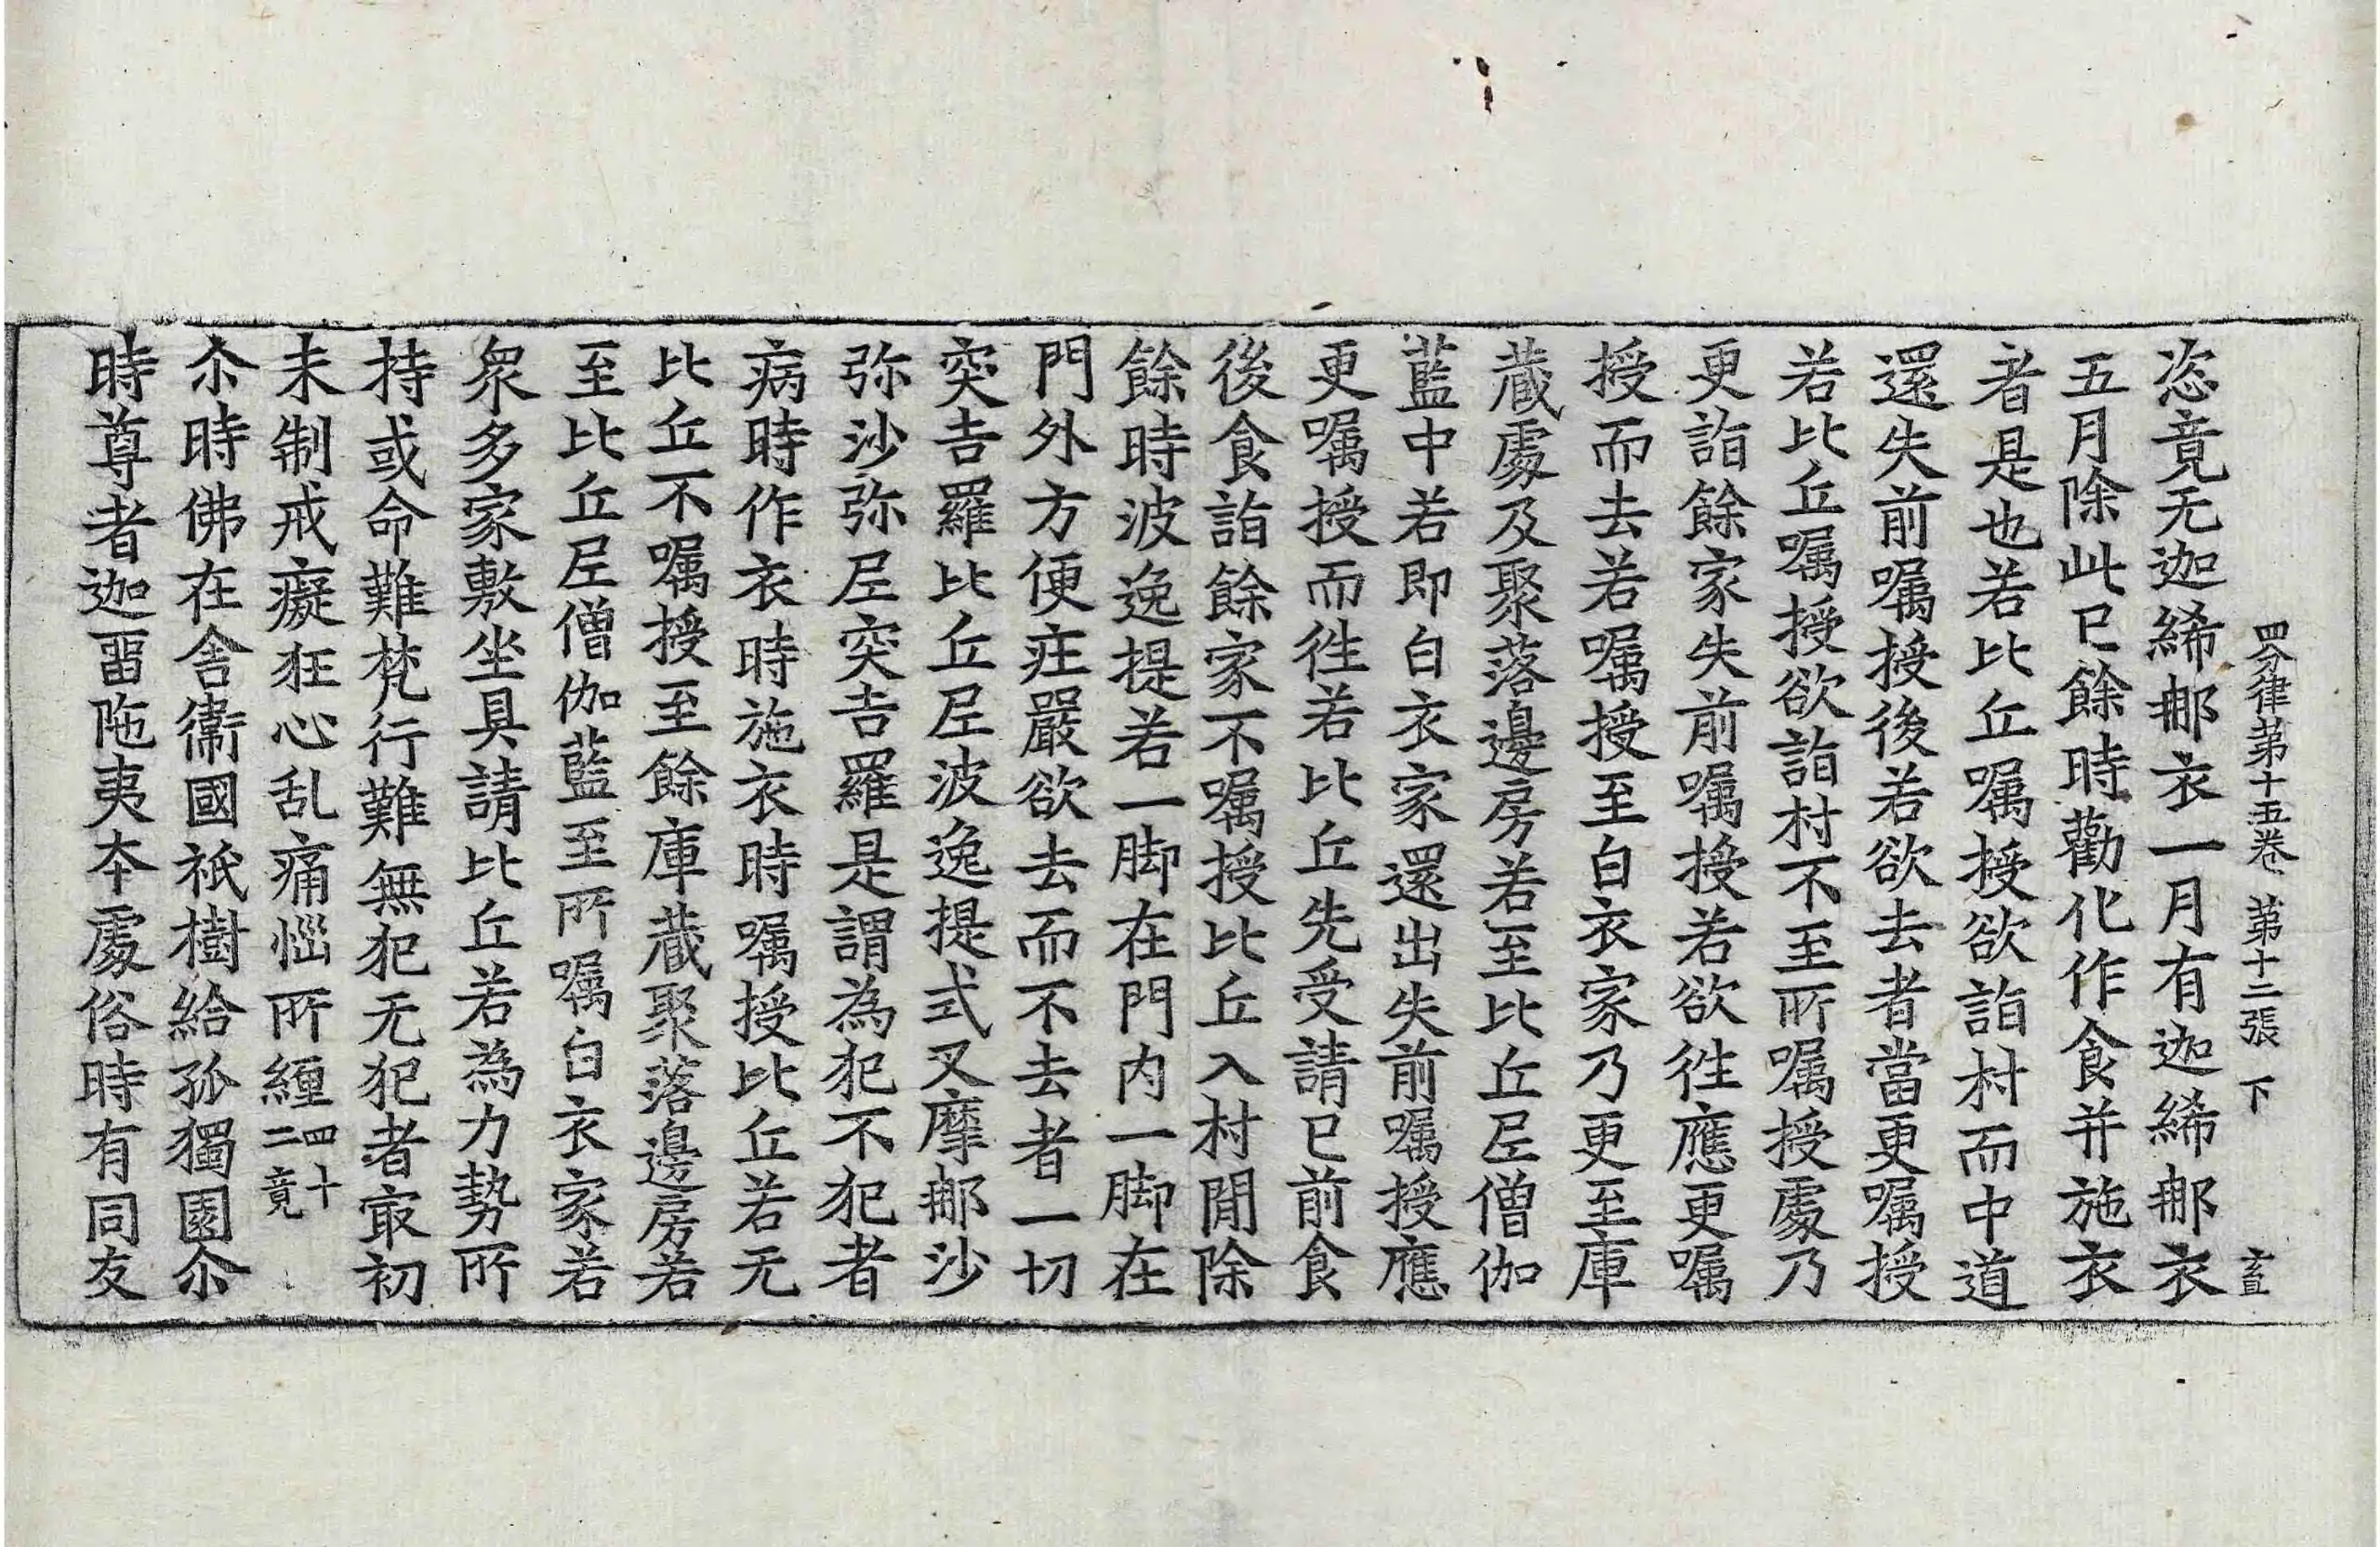 四分律第十五卷 第十二張 下
恣竟无迦絺那衣一月有迦絺那衣
五月除此已餘時勸化作食并施衣
者是也若比丘嘱授欲詣村而中道
還失前嘱授後若欲去者當更嘱授
若比丘嘱授欲詣村不至所嘱授處乃
更詣餘家失前嘱授若欲徃應更嘱
授而去若嘱授至白衣家乃更至庫
蔵處及聚落邊房若至比丘尼僧伽
藍中若即白衣家還出失前嘱授應
更嘱授而徃若比丘先受請已前食
後食詣餘家不嘱授比丘入村閒除
餘時波逸提若一脚在門内一脚在
門外方便庄嚴欲去而不去者一切
突吉羅比丘尼波逸提式叉摩那沙
弥沙弥尼突吉羅是謂為犯不犯者
病時作衣時施衣時嘱授比丘若无
比丘不嘱授至餘庫蔵聚落邊房若
至比丘尼僧伽藍至所嘱白衣家若
衆多家敷坐具請比丘若為力勢所
持或命難梵行難無犯无犯者㝡初
未制戒癡狂心乱痛惱所纏四十二竟
尒時佛在舍衛國祇樹給孤獨園尒
時尊者迦留陁夷夲處俗時有同友